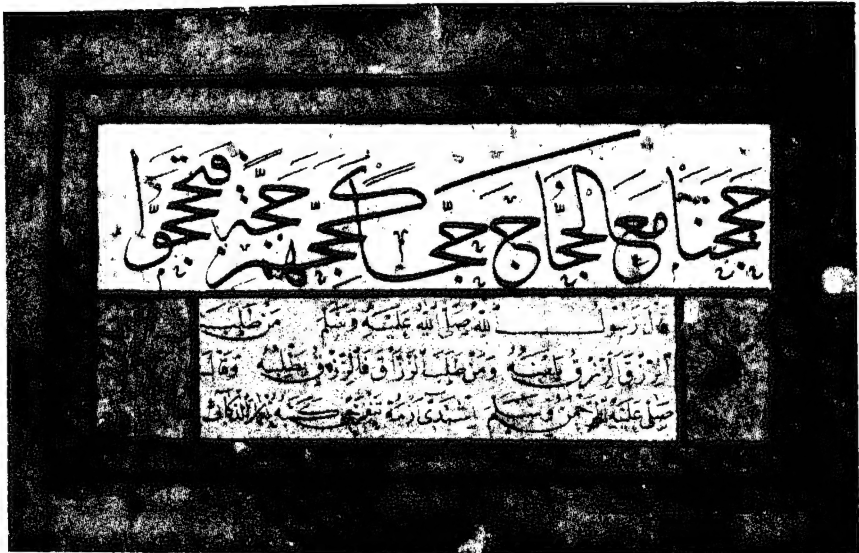 حججنا مع الحجاج حجا كحجهم حجة فتحججوا
قال رسول الله صلى الله عليه وسلم من طلب
الرزق ومن طلب الرزاق فالرزق يطلبه وقال
صلى عليه الرحمن وسلم